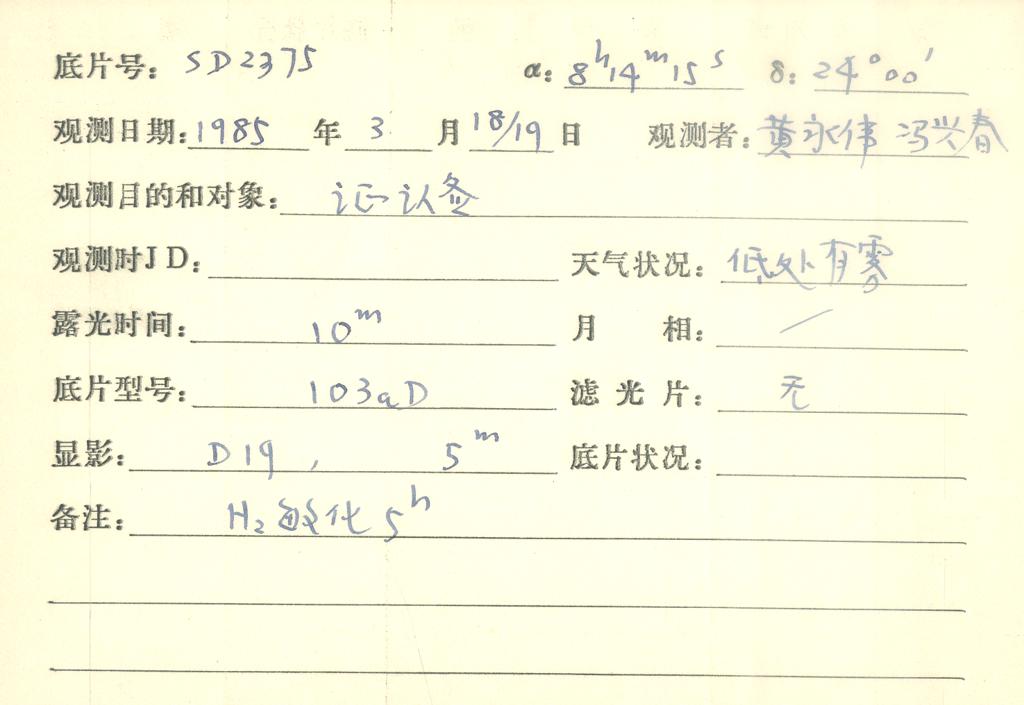 底片号: SD2375 α: 8ʰ14ᵐ15ˢ δ: 24°00′
观测日期: 1985 年 3 月 18/19 日 观测者: 黄永伟 冯兴春
观测目的和对象: 证认
观测时JD: 天气状况: 低处有雾
露光时间: 10ᵐ 月 相: /
底片型号: 103aD 滤光片: 无
显影: D19, 5ᵐ 底片状况:
备注: H₂敏化5ʰ